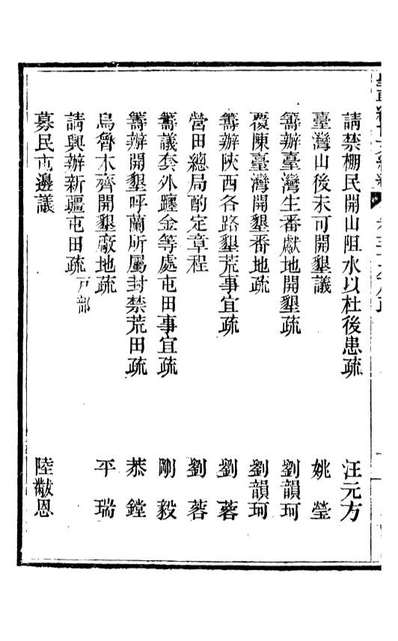 請禁棚民開山阻水以杜後患疏 汪元方
臺灣山後未可開墾議 姚瑩
籌辦臺灣生番獻地開墾疏 劉韻珂
覆陳臺灣開墾番地疏 劉韻珂
籌辦陝西各路墾荒事宜疏 劉蓉
營田總局酌定章程 劉蓉
籌議套外躔金等處屯田事宜疏 剛毅
籌辦開墾呼蘭所屬封禁荒田疏 恭鏜
烏魯木齊開墾廠地疏 平瑞
請興辦新疆屯田疏 戸部
募民屯邊議 陸黻恩